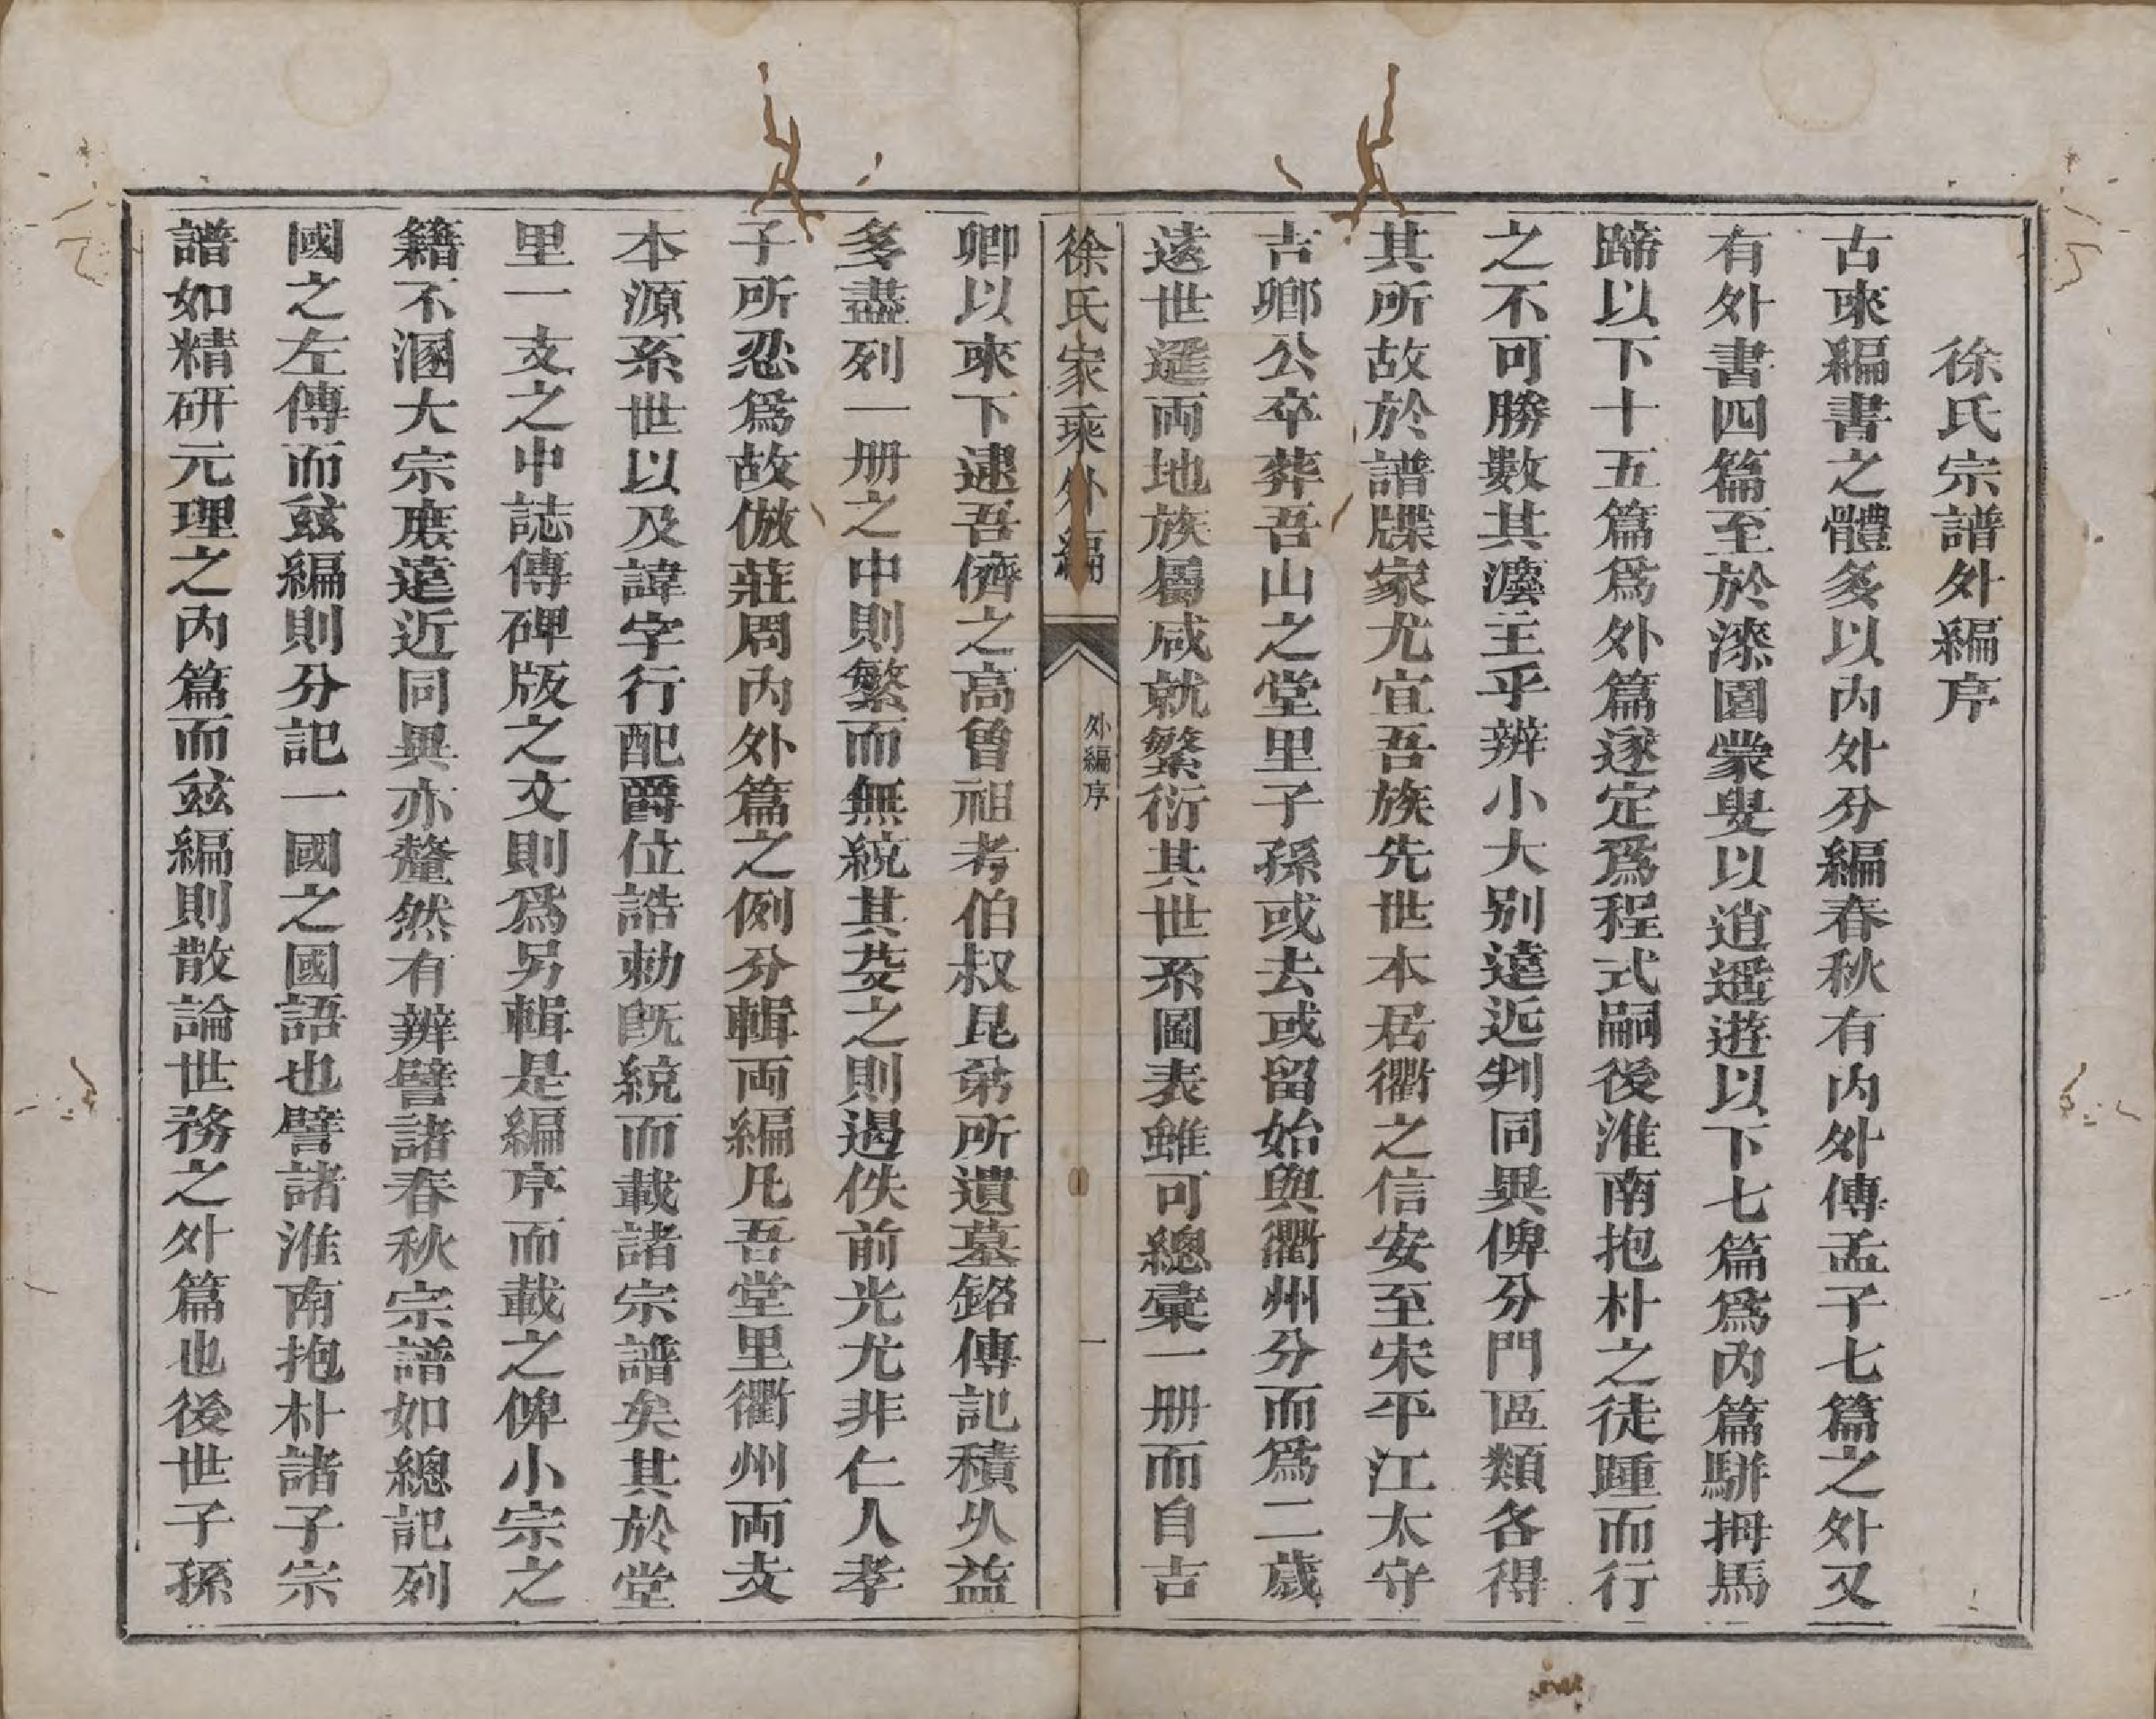 徐氏宗譜外編序
古來編書之體多以內外分編春秋有內外傳孟子七篇之外又
有外書四篇至於漆園蒙叟以逍遥遊以下七篇爲內篇駢拇馬
蹄以下十五篇爲外篇遂定爲程式嗣後淮南抱朴之徒踵而行
之不可勝數其灋主乎辨小大别遠近判同異俾分門區類各得
其所故於譜牒家尤宜吾族先世本居衢之信安至宋平江太守
吉卿公卒葬吾山之堂里子孫或去或留始與衢州分而爲二歲
遠世遞両地族屬咸就繁衍其世系圖表雖可總彙一册而自吉
徐氏家乘外編
外編序
一
卿以來下逮吾儕之高曾祖考伯叔昆弟所遺墓銘傳記積久益
多盡列一册之中則繁而無統其芟之則遏佚前光尤非仁人孝
子所忍爲故倣莊周內外篇之例分輯両編凡吾堂里衢州両支
本源系世以及諱字行配爵位誥勅既統而載諸宗譜矣其於堂
里一支之中誌傳碑版之文則爲另輯是編序而載之俾小宗之
籍不溷大宗庶遠近同異亦釐然有辨譬諸春秋宗譜如總記列
國之左傳而兹編則分記一國之國語也譬諸淮南抱朴諸子宗
譜如精研元理之內篇而兹編則散論世務之外篇也後世子孫